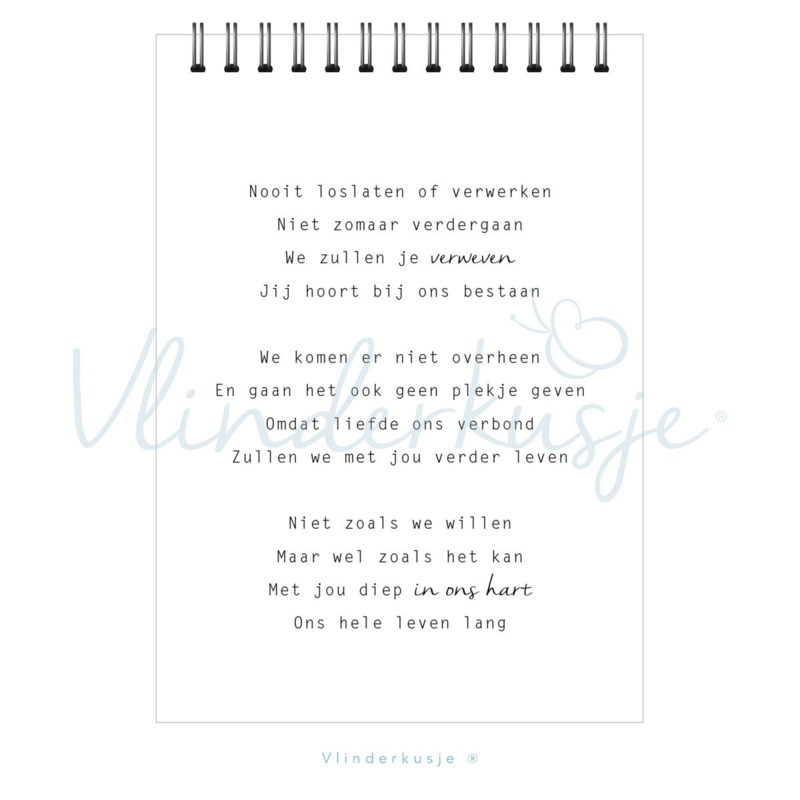 Nooit loslaten of verwerken
Niet zomaar verdergaan
We zullen je verweven
Jij hoort bij ons bestaan
We komen er niet overheen
En gaan het ook geen plekje geven
Omdat liefde ons verbond
Zullen we met jou verder leven
Niet zoals we willen
Maar wel zoals het kan
Met jou diep in ons hart
Ons hele leven lang
Vlinderkusje ®
Vlinderkusje ®